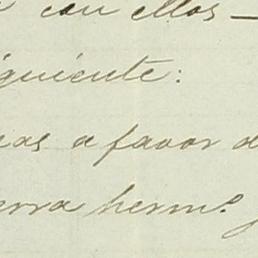 con ellos —
iguiente:
as a favor d
erra herm.º